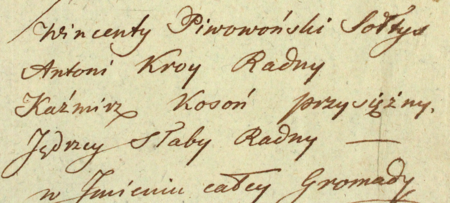 Wincenty Piwowoński Sołtys
Antoni Kroy Radny
Kaźmirz Kosoń przysiężny.
Jędrzey Słaby Radny —
w Jmieniu całey Gromady